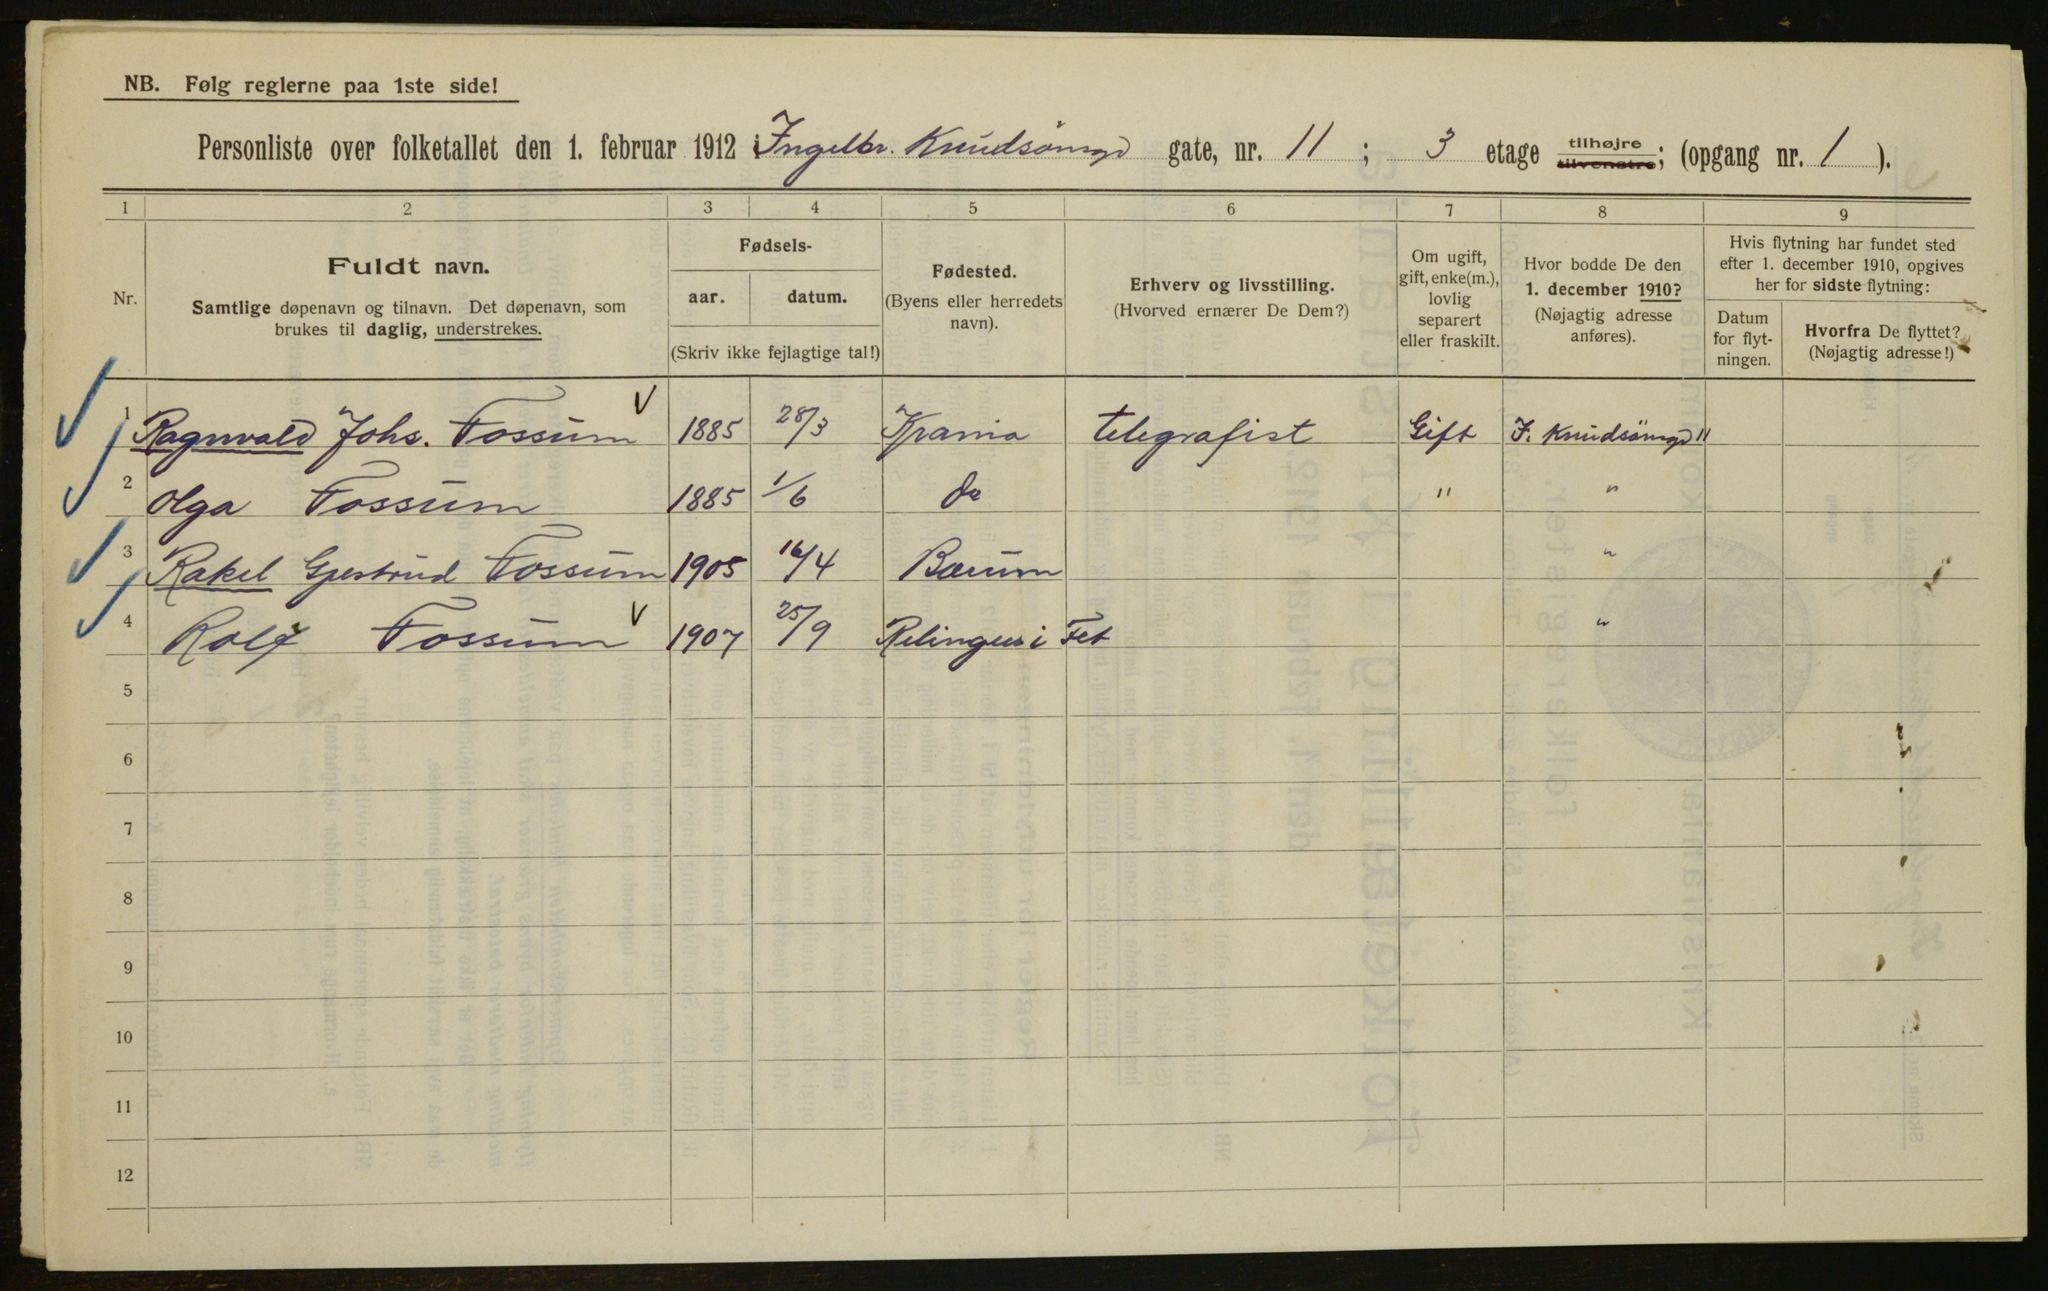 NB. Følg reglerne paa 1ste side!
Personliste over folketallet den 1. februar 1912 i Ingelbr. Knudsönsgd gate, nr. 11 ; 3 etage tilhøjre tilvenstre; (opgang nr. 1 ).
1 2 3 4 5 6 7 8 9
Nr.
Fuldt navn.
Samtlige døpenavn og tilnavn. Det døpenavn, som
brukes til daglig, understrekes.
Fødsels-
aar. datum.
(Skriv ikke fejlagtige tal!)
Fødested.
(Byens eller herredets
navn).
Erhverv og livsstilling.
(Hvorved ernærer De Dem?)
Om ugift,
gift, enke(m.),
lovlig
separert
eller fraskilt.
Hvor bodde De den
1. december 1910?
(Nøjagtig adresse
anføres).
Hvis flytning har fundet sted
efter 1. december 1910, opgives
her for sidste flytning:
Datum
for flyt-
ningen.
Hvorfra De flyttet?
(Nøjagtig adresse!)
1 Ragnvald Johs. Fossum 1885 28/3 Krania telegrafist Gift I. Knudsönsgd 11
2 Olga Fossum 1885 1/6 do " "
3 Rakel Gjertrud Fossum 1905 16/4 Bærum "
4 Rolf Fossum 1907 25/9 Relingen i Fet "
5
6
7
8
9
10
11
12